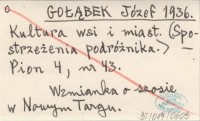 GOŁĄBEK Józef 1936.
Kultura wsi i miast. (Spo-
strzeżenia podróżnika.) —
Pion 4, nr 43.
Wzmianka o
w Nowym Targu.